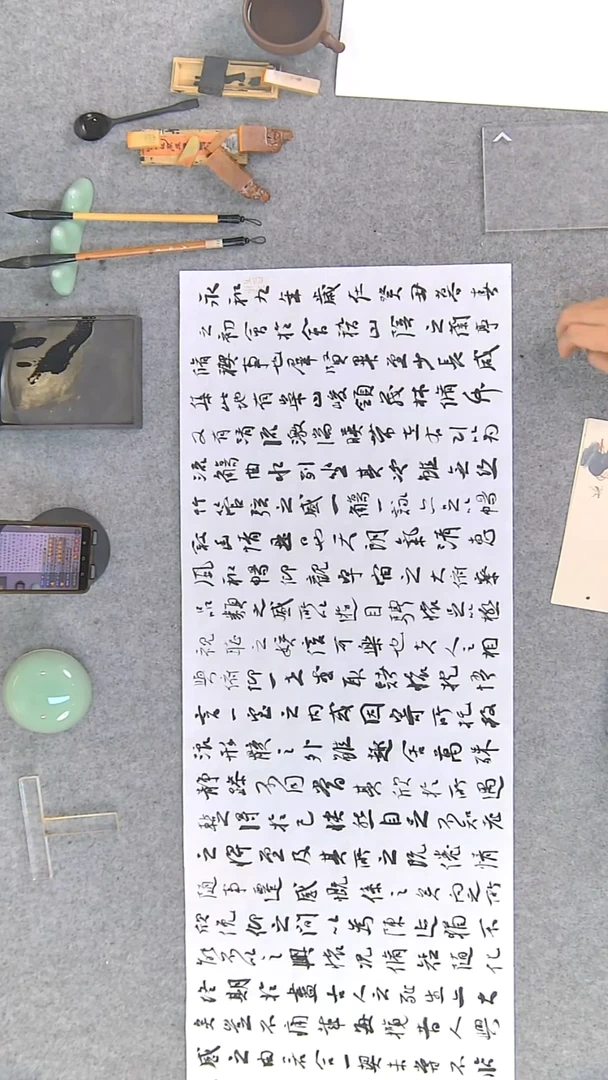 永和九年歲在癸丑暮春
之初會於會稽山陰之蘭亭
脩稧事也群賢畢至少長咸
集此地有崇山峻領茂林脩竹
又有清流激湍暎帶左右引以為
流觴曲水列坐其次雖無絲
竹管弦之盛一觴一詠亦足以暢
敘幽情是日也天朗氣清惠
風和暢仰觀宇宙之大俯察
品類之盛所以遊目騁懷足以極
視聽之娛信可樂也夫人之相
與俯仰一世或取諸懷抱悟
言一室之內或因寄所託放
浪形骸之外雖趣舍萬殊
靜躁不同當其欣於所遇
暫得於己快然自足不知老
之將至及其所之既惓情
隨事遷感慨係之矣向之所
欣俛仰之間以為陳迹猶不
能不以之興懷況脩短隨化
終期於盡古人云死生亦大
矣豈不痛哉每攬昔人興
感之由若合一契未嘗不臨